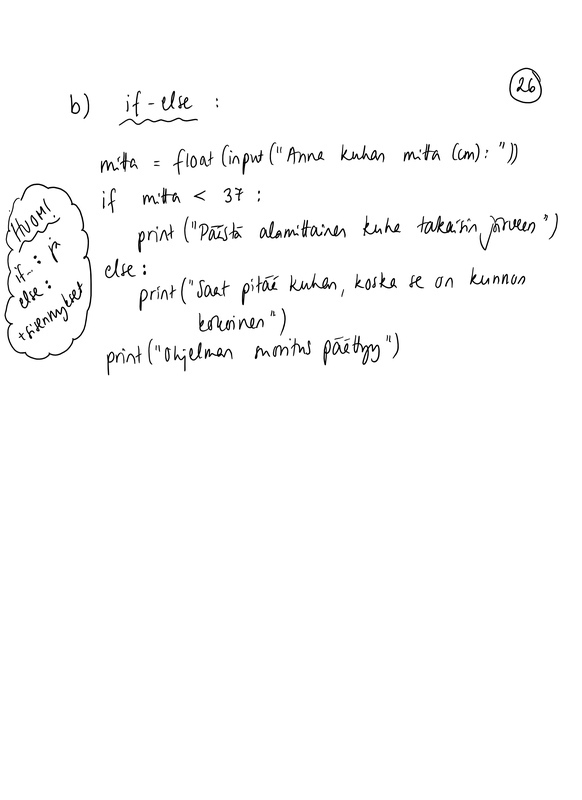 26
b) if-else :
mitta = float(input("Anna kuhan mitta (cm): "))
if mitta < 37 :
print ("Päästä alamittainen kuha takaisin järveen")
else :
print ("Saat pitää kuhan, koska se on kunnon
kokoinen")
print ("Ohjelman suoritus päättyy")
HUOM!
if... : ja
else :
+ sisennykset